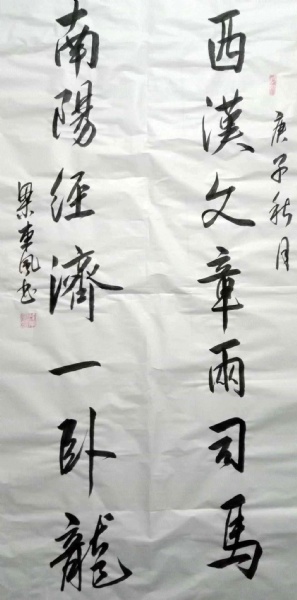 庚子秋月
西漢文章兩司馬
南陽經濟一卧龍
梁東風书